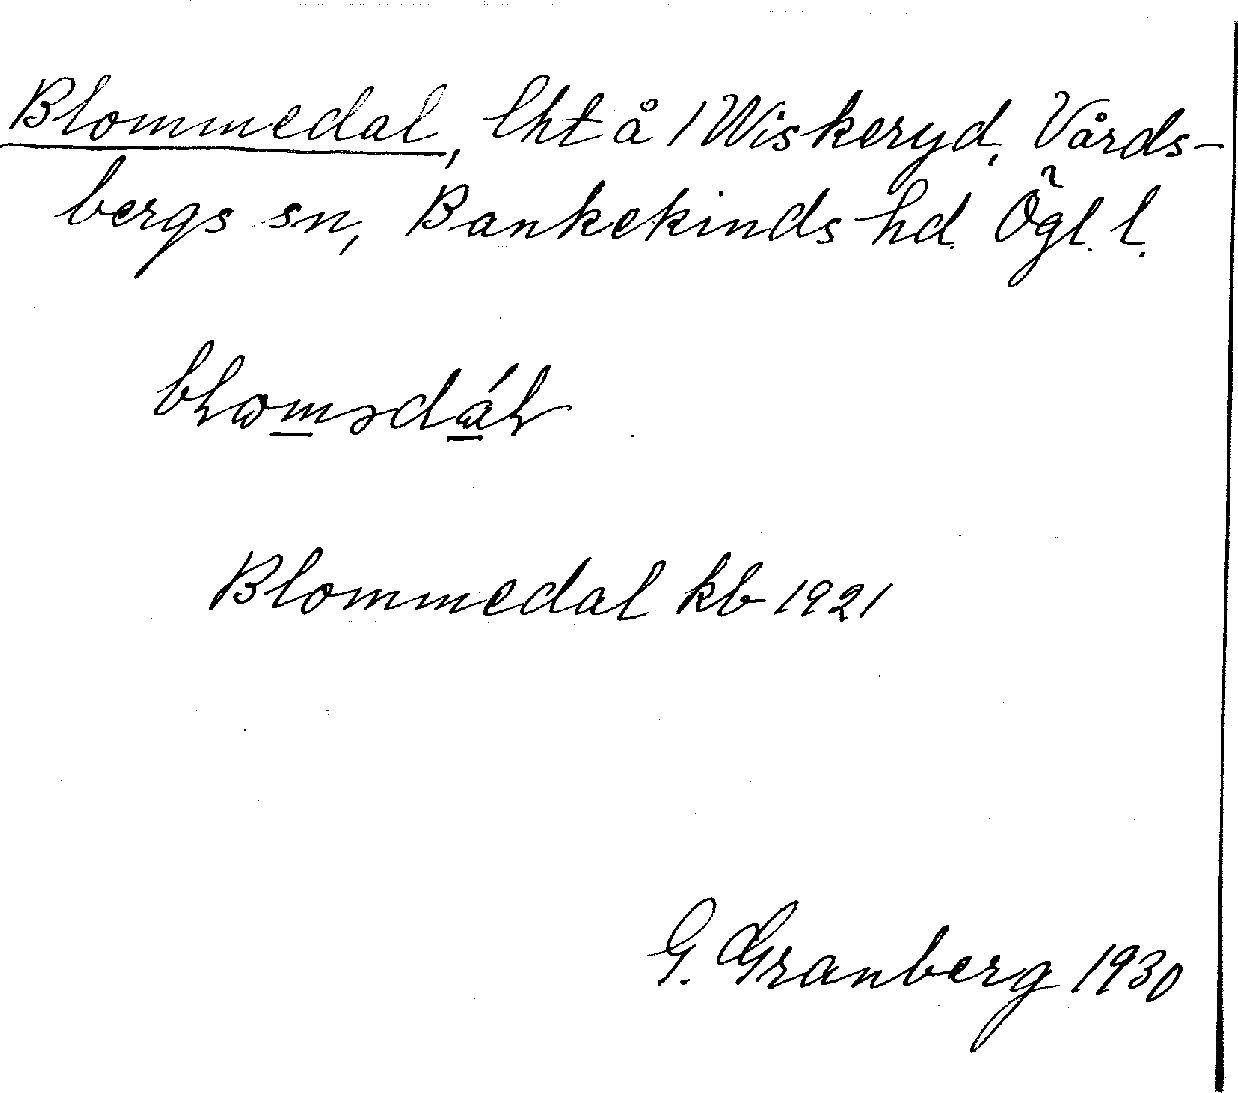 Blommedal, lht å 1 Wiskeryd, Vårds-
bergs sn, Bankekinds hd. Ögl. l.
Blommedal kb 1921
G. Granberg 1930